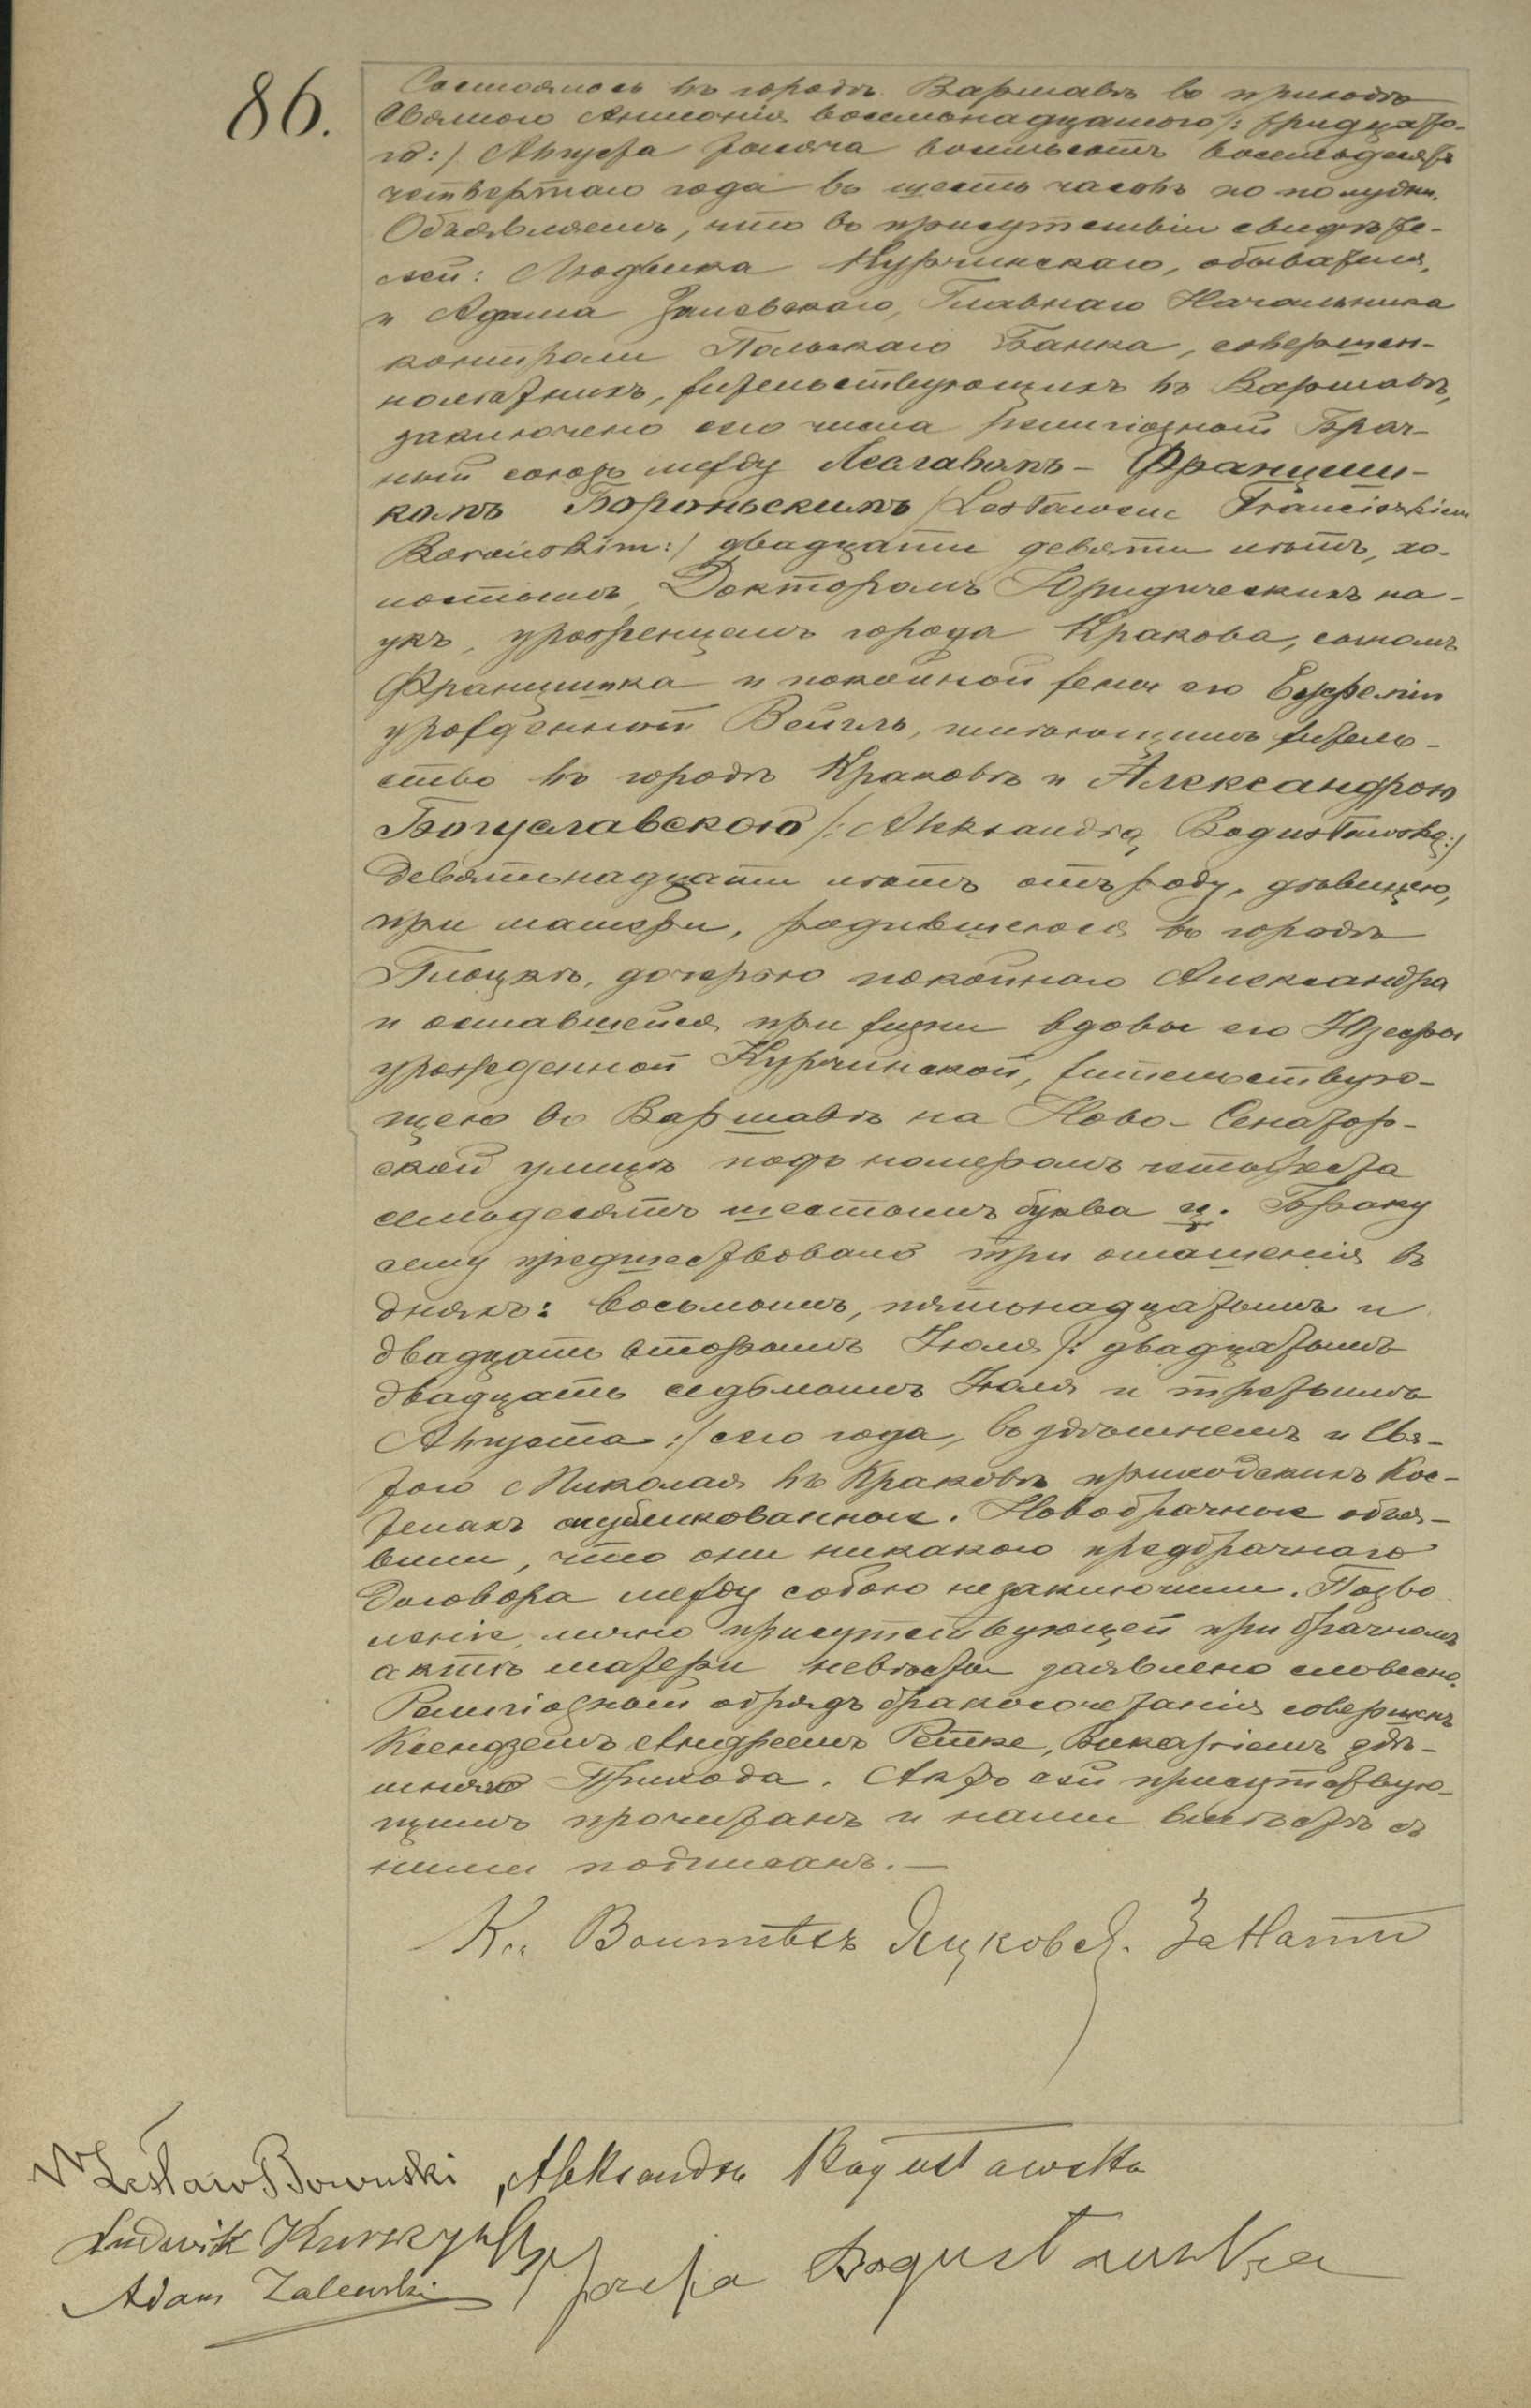 86.
Состоялось въ городѣ Варшавѣ въ приходѣ
Святого Антонія восемьнадцатого /: тридцато-
го :/ Августа тысяча восемьсотъ восемьдесятъ
четвертаго года въ шесть часовъ по полудни.
Объявляемъ, что въ присутствіи свидѣте-
лей: Людвика Курчинскаго, обывателя,
и Адама Залевскаго, Главнаго Начальника
контроли Польскаго Банка, совершен-
нолѣтнихъ, жительствующихъ въ Варшавѣ,
заключено сего числа религіозный Брач-
ный союзъ между Леславомъ - Францыш-
комъ Бороньскимъ /Lesławem Franciszkiem
Borońskim :/ двадцати девяти лѣтъ, хо-
лостымъ, Докторомъ Юридическихъ на-
укъ, уроженцемъ города Кракова, сыномъ
Францишка и покойной жены его Еуфеміи
урожденной Вейгль, имѣющимъ житель-
ство въ городѣ Краковѣ и Александрою
Богуславскою /: Aleksandrą Bogusławską :/
девятьнадцати лѣтъ отъ роду, дѣвицею,
при матери, родившеюся въ городѣ
Плоцкѣ, дочерью покойнаго Александра
и оставшейся при жизни вдовы его Юзефы
урожденной Курчинской, жительствую-
щею въ Варшавѣ на Ново-Сенатор-
ской улицѣ подъ номеромъ четыреста
семьдесятъ шестымъ буква ц. Браку
сему предшествовало три оглашенія въ
дняхъ: восьмомъ, пятьнадцатомъ и
двадцать второмъ Іюля /: двадцатомъ
двадцать седьмомъ Іюля и третьимъ
Августа :/ сего года, въ здѣшнемъ и Свя-
того Николая въ Краковѣ приходскихъ Кос-
телахъ опубликованныя. Новобрачные объя-
вили, что они никакого предбрачнаго
договора между собою не заключили. Позво
леніе лично присутствующей при брачномъ
актѣ матери невѣсты заявлено словесно.
Религіозный обрядъ бракосочетанія совершенъ
Ксендземъ Андреемъ Ретке, Викаріемъ здѣ-
шняго Прихода. Актъ сей присутствую-
щимъ прочитанъ и нами вмѣстѣ съ
ними подписанъ. —
Кс. За
Lesław Boroński Aleksandra Bogusławska
Ludwik Kurczyński
Adam Zalewski Józefa Bogusławska